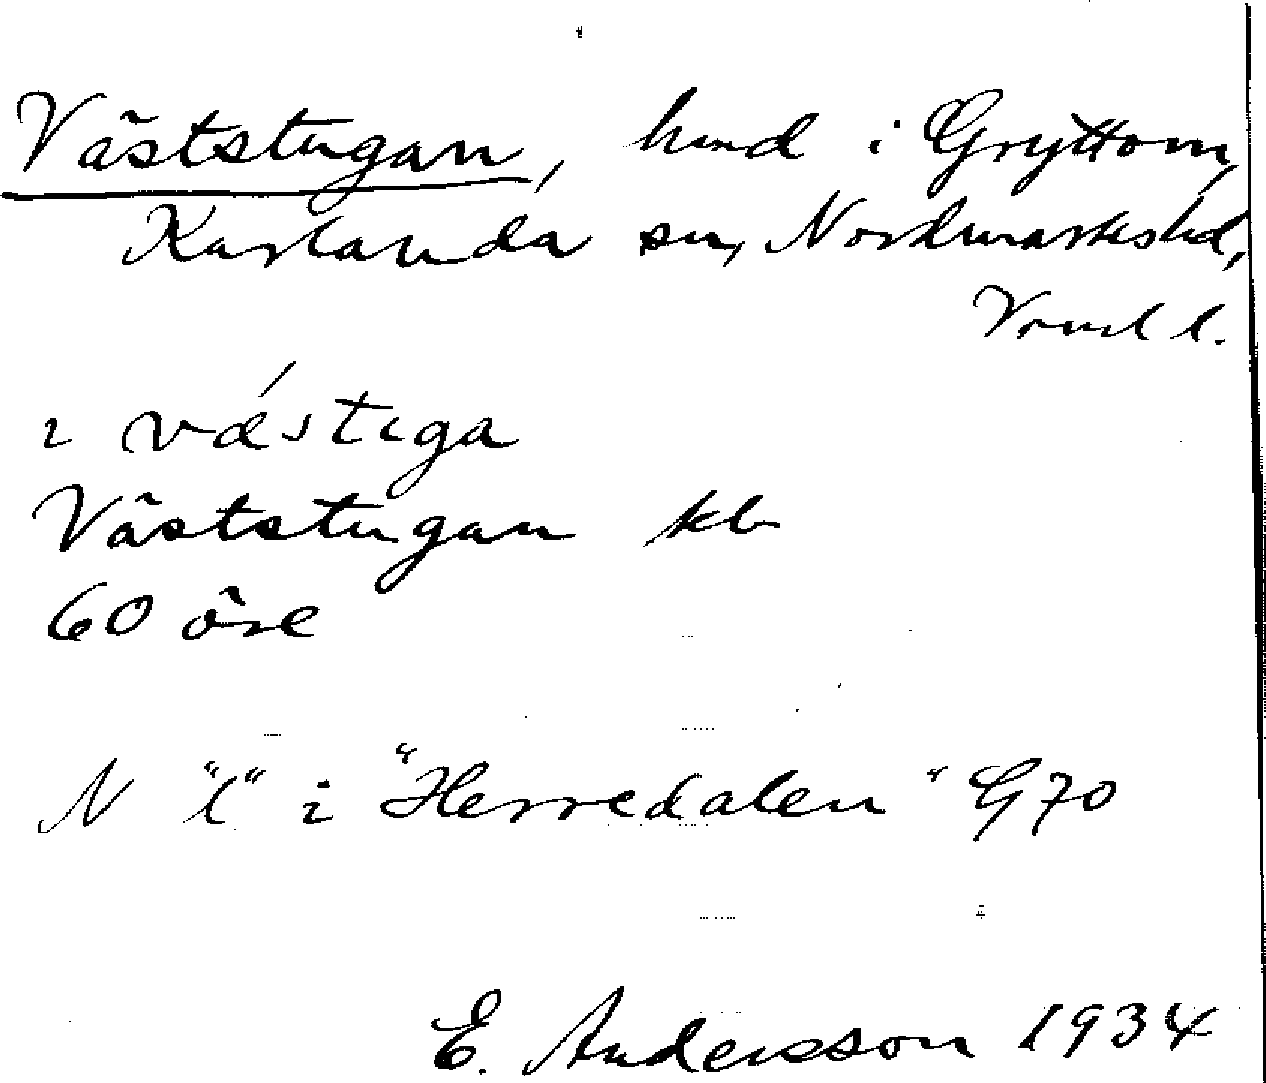 Väststugan, hmd i Gryttom,
Karlanda sn, Nordmarks hd,
Vrml l.
i vǽstıga
Väststugan kb
60 öre
N "l" i "Herredalen" G70
E. Andersson 1934